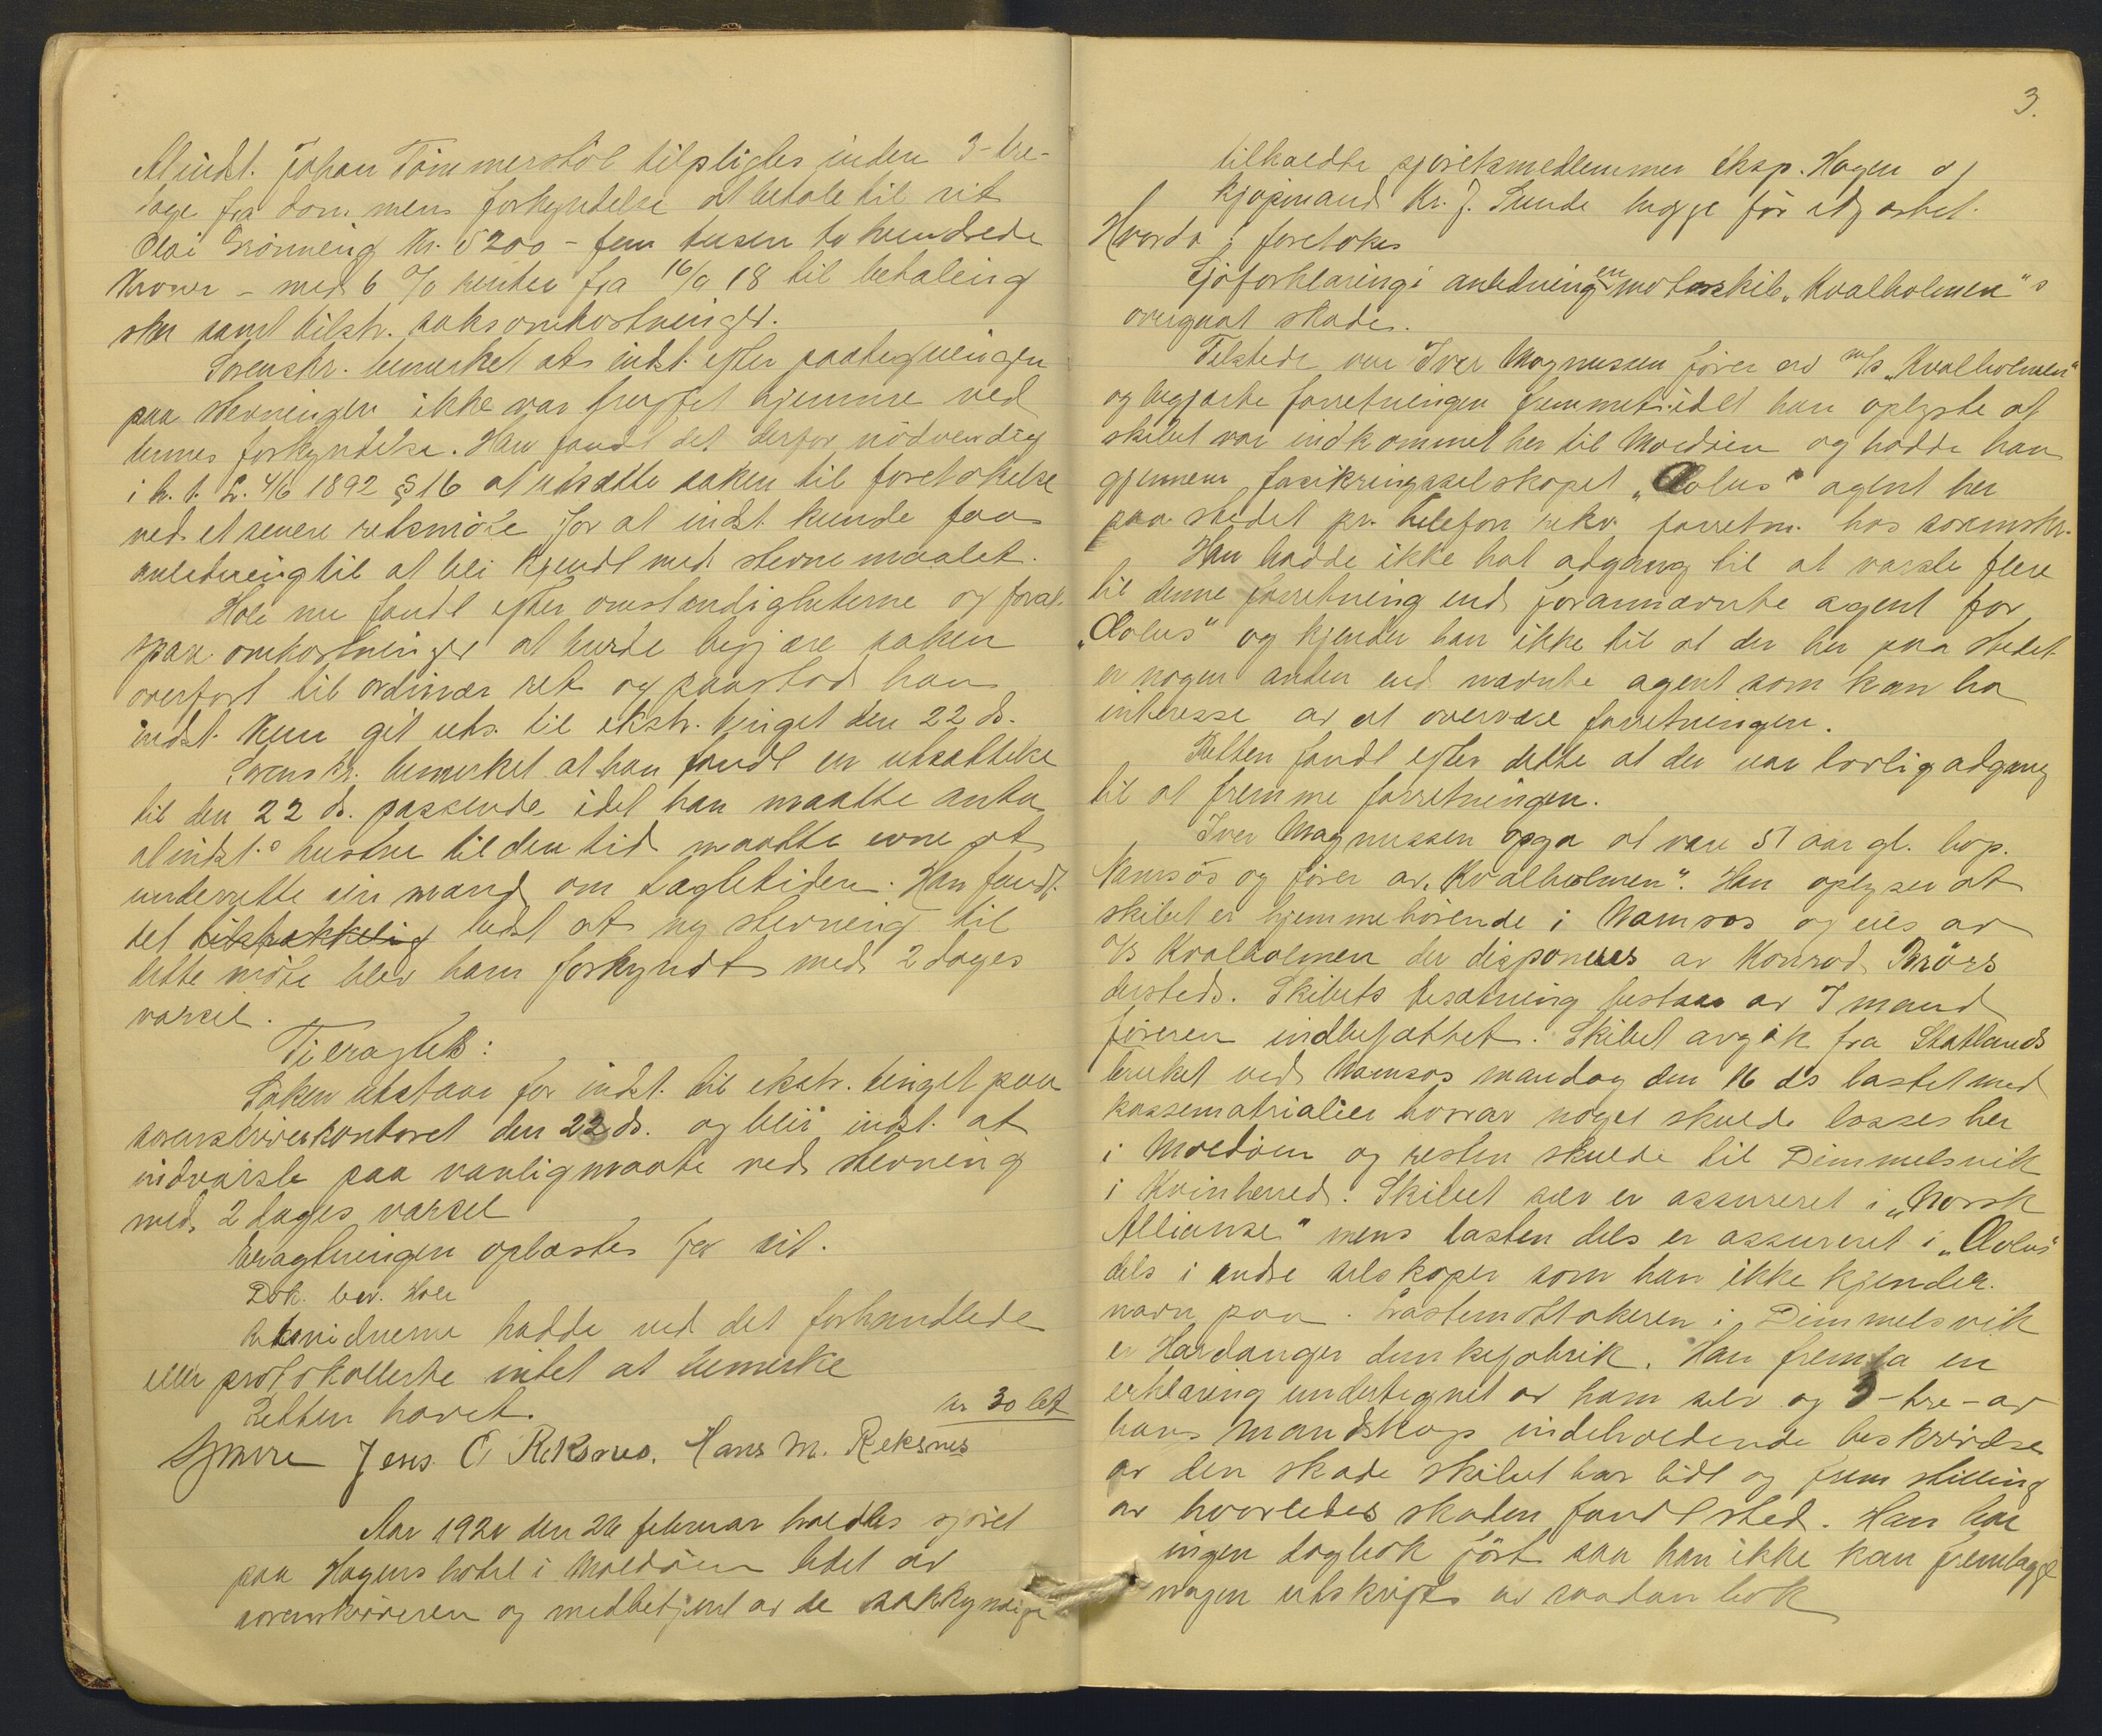 At indst. Johan Tömmerstöl tilpligtes inden 3-tre-
dage fra dommens forkyndelse at betale til cit.
Olai Grönneng kr. 5200 - fem tusen to hundrede
kroner - med 6 % renter fra 16/9 18 til betaling
sker samt tilstr. saksomkostninger.
Sorenskr. bemerket at indst. efter paategningen
paa stevningen ikke var truffet hjemme ved
dennes forkyndelse. Han fandt det derfor nödvendig
i h. t. L. 4/6 1892 § 16 at utsætte saken til foretakelse
ved et senere retsmöte for at indst. kunde faa
anledning til at bli kjendt med stevnemaalet.
Hole nu fandt efter omstændigheterne og foraar-
spaa omkostninger at burde begjære saken
overfört til ordinær ret og paastod han
indst. kun git uts. til ekstr. tinget den 22 ds.
Sorenskr. bemerket at han fandt en utsættelse
til den 22 ds. passende idet han maatte anta
at indst.s hustru til den tid maatte evne at
underrette sin mand om sagtiden. Han fandt
det tilstrækkelig bedst at ny stevning til
dette möte blev ham forkyndt med 2 dages
varsel.
Ti eragtes:
Saken utstaar for indst. til ekstr. tinget paa
sorenskriverkontoret den 22 ds. og blir indst. at
indvarsle paa vanlig maate ved stevning
med 2 dages varsel
Eragtningen oplæstes for cit.
Dok. lev. Hole
Retsvidnerne hadde ved det forhandlede
eller protokollerte intet at bemerke
Retten hævet.
Jens O Reksnes. Hans M. Reksnes
Aar 1920 den 26 februar holdtes sjöret
paa Hagens hotel i Maldöen ledet av
sorenskriveren og medbetjent av de sakkyndige
3.
tilkaldte sjöretsmedlemmer eksp. Hagen og
kjöpmand Kr. J. Sunde begge för edfæstet.
Hvorda; foretokes
Sjöforklaring i anledning en motorskib „Kvalholmen"s
overgaat skade.
Tilstede var Iver Magnussen förer av m/s „Kvalholmen"
og begjærte forretningen fremmet idet han oplyste at
skibet var indkommet her til Moldöen og hadde han
gjennem forsikringsselskapet „Æolus" agent her
paa stedet pr. telefon rekv. forretn. hos sorenskr.
Han hadde ikke hat adgang til at varsle flere
til denne forretning end forannævnte agent for
„Æolus" og kjender han ikke til at der her paa stedet
er nogen anden end nævnte agent som kan ha
interesse av at overvære forretningen.
Retten fandt efter dette at der var lovlig adgang
til at fremme forretningen.
Iver Magnussen opga at være 51 aar gl. bop.
Namsos og förer av „Kvalholmen". Han oplyser at
skibet er hjemmehörende i Namsos og eies av
A/S Kvalholmen der disponeres av Konrad Brörs
dersteds. Skibets besætning bestaar av 7 mand
föreren indbefattet. Skibet avgik fra Statlands
bruket ved Namsos mandag den 16 ds lastet med
kassematrialier hvorav noget skulde losses her
i Moldöen og resten skulde til Dimmelsvik
i Kvinherred. Skibet selv er assureret i „Norsk
Allianse" mens lasten dels er assureret i „Æolus"
dels i andre selskaper som han ikke kjender
navn paa. Lastemottakeren i Dimmelsvik
er Hardanger dunkefabrik. Han fremla en
erklæring undertegnet av ham selv og 3-tre-av
hans mandskap indeholdende beskrivelse
av den skade skibet har lidt og fremstilling
av hvorledes skaden fandt sted. Han har
ingen dagbok fört saa han ikke kan fremlægge
nogen utskrift av saadan bok